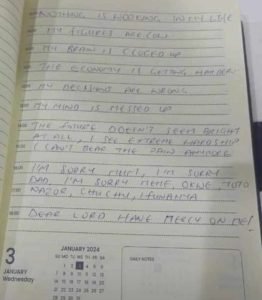 NOTHING IS WORKING IN MY LIFE
MY FIGURES ARE LOW
MY BRAIN IS CLOGED UP
THE ECONOMY IS GETTING HARDER
MY DECISIONS ARE WRONG
MY MIND IS MESSED UP
THE FUTURE DOESN'T SEEM BRIGHT
AT ALL, I SEE EXTREME HARDSHIP
I CAN'T BEAR THE PAIN ANYMORE
I'M SORRY MUM, I'M SORRY
DAD, I'M SORRY
CHUCHU, IFUNANYA
DEAR LORD HAVE MERCY ON ME!
3
JANUARY
Wednesday
JANUARY 2024
SU MO TU WE TH FR SA
DAILY NOTES